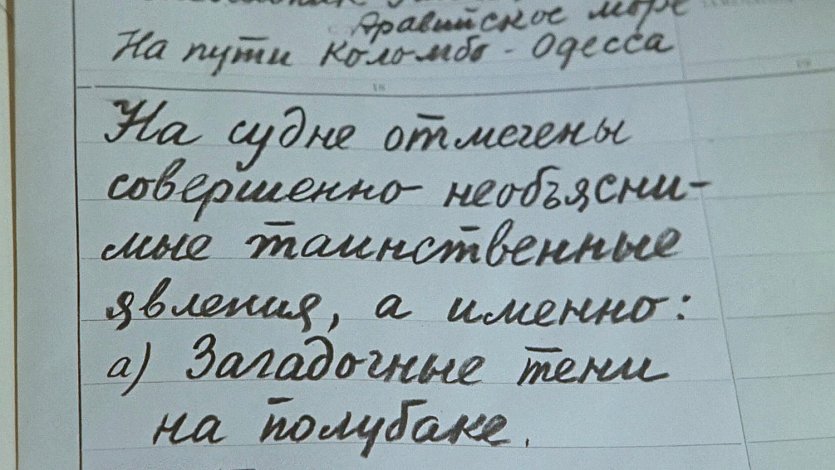 Аравийское море
На пути Коломбо - Одесса
18
На судне отмечены
совершенно необъясни-
мые таинственные
явления, а именно:
а) Загадочные тени
на полубаке.